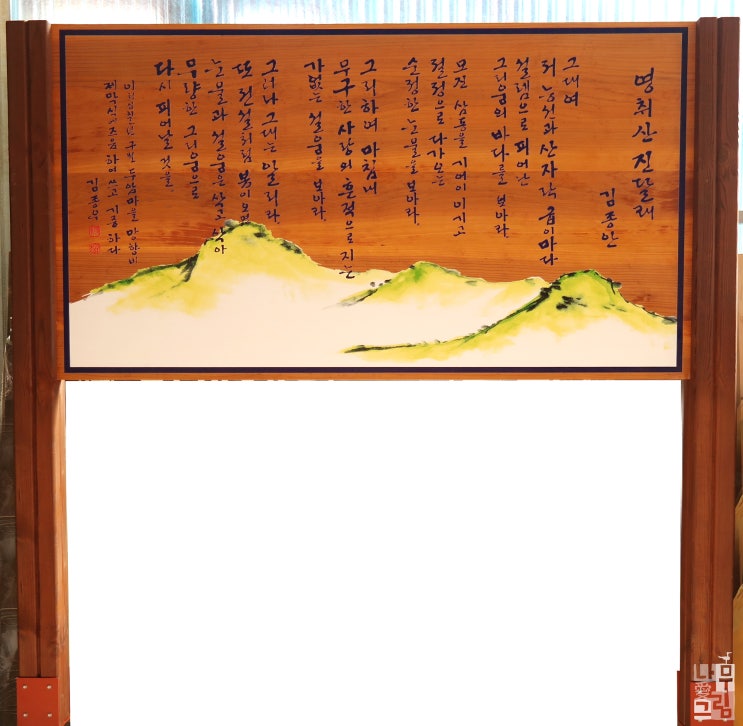 영취산 진달래
김종안
그대여
저 능선과 산자락 굽이마다
설렘으로 피어난
그리움의 바다를 보아라.
모진 삼동을 기어이 이기고
열정으로 다가오는
순정한 눈물을 보아라.
그리하여 마침내
무구한 사랑의 흔적으로 지는
가없는 설움을 보아라.
그러나 그대는 알리라.
또 전설처럼 봄이 오면
눈물과 설움은 삭고 삭아
무량한 그리움으로
다시 피어날 것을.
이천십팔년 구월 두암마을 망향비
제막식에 즈음하여 쓰고 기증하다
김종우
나무
그림